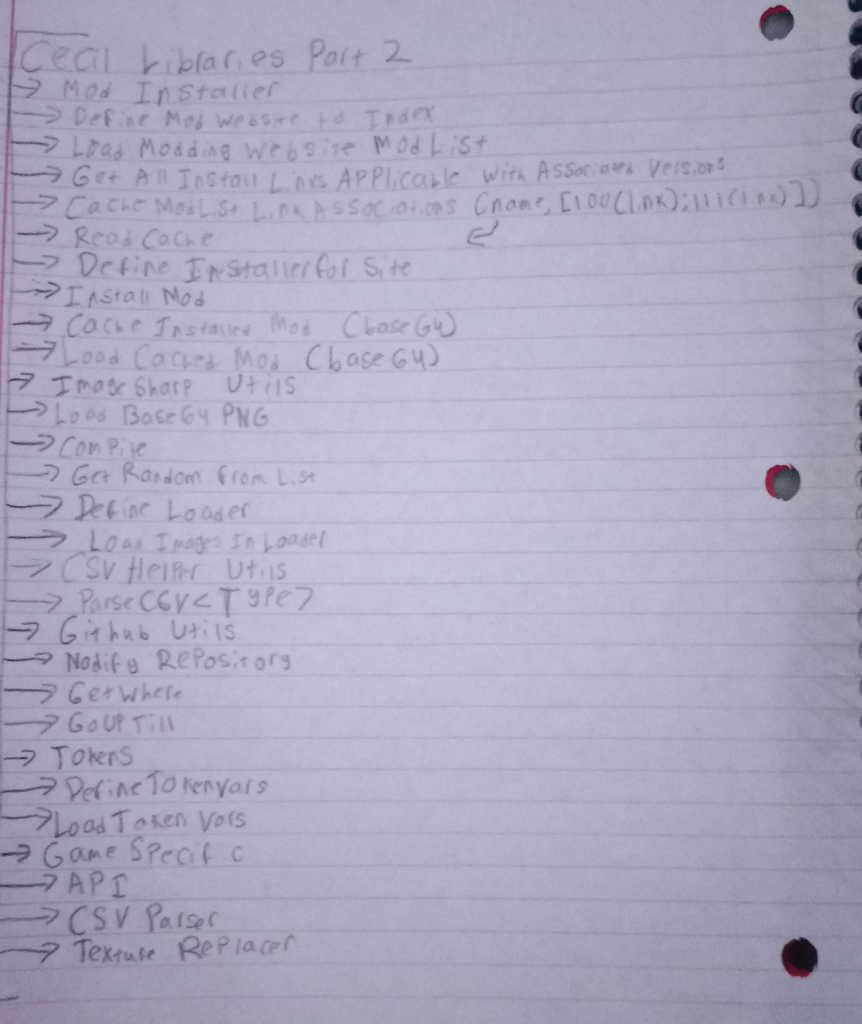 Cecil Libraries Part 2
→ Mod Installer
→ Define Mod Website to Index
→ Load Modding Website Mod List
→ Get All Install Links Applicable with Associated Versions
→ Cache ModList Link Associations (name, [100(link);111(link)])
→ Read Cache
→ Define Installer for Site
→ Install Mod
→ Cache Installed Mod (base64)
→ Load Cached Mod (base64)
→ ImageSharp Utils
→ Load Base64 PNG
→ Compile
→ Get Random from List
→ Define Loader
→ Load Images In Loader
→ CSV Helper Utils
→ Parse CSV<Type>
→ Github Utils
→ Nodify Repository
→ Get Where
→ Go UP Till
→ Tokens
→ Define Token Vars
→ Load Token Vars
→ Game Specific
→ API
→ CSV Parser
→ Texture Replacer